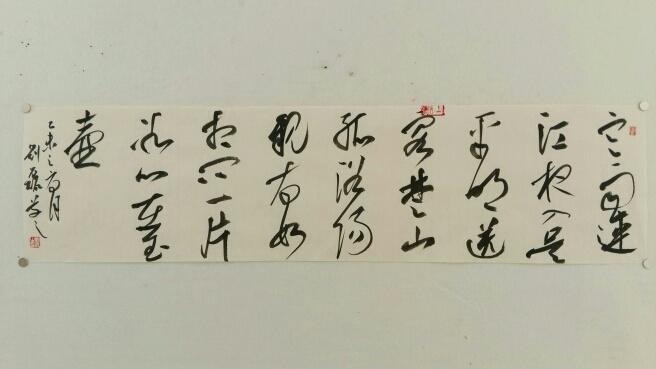 寒雨連
江夜入吳
平明送
客楚山
孤洛陽
親友如
相问一片
冰心在玉
壺
乙未之月
刘书之